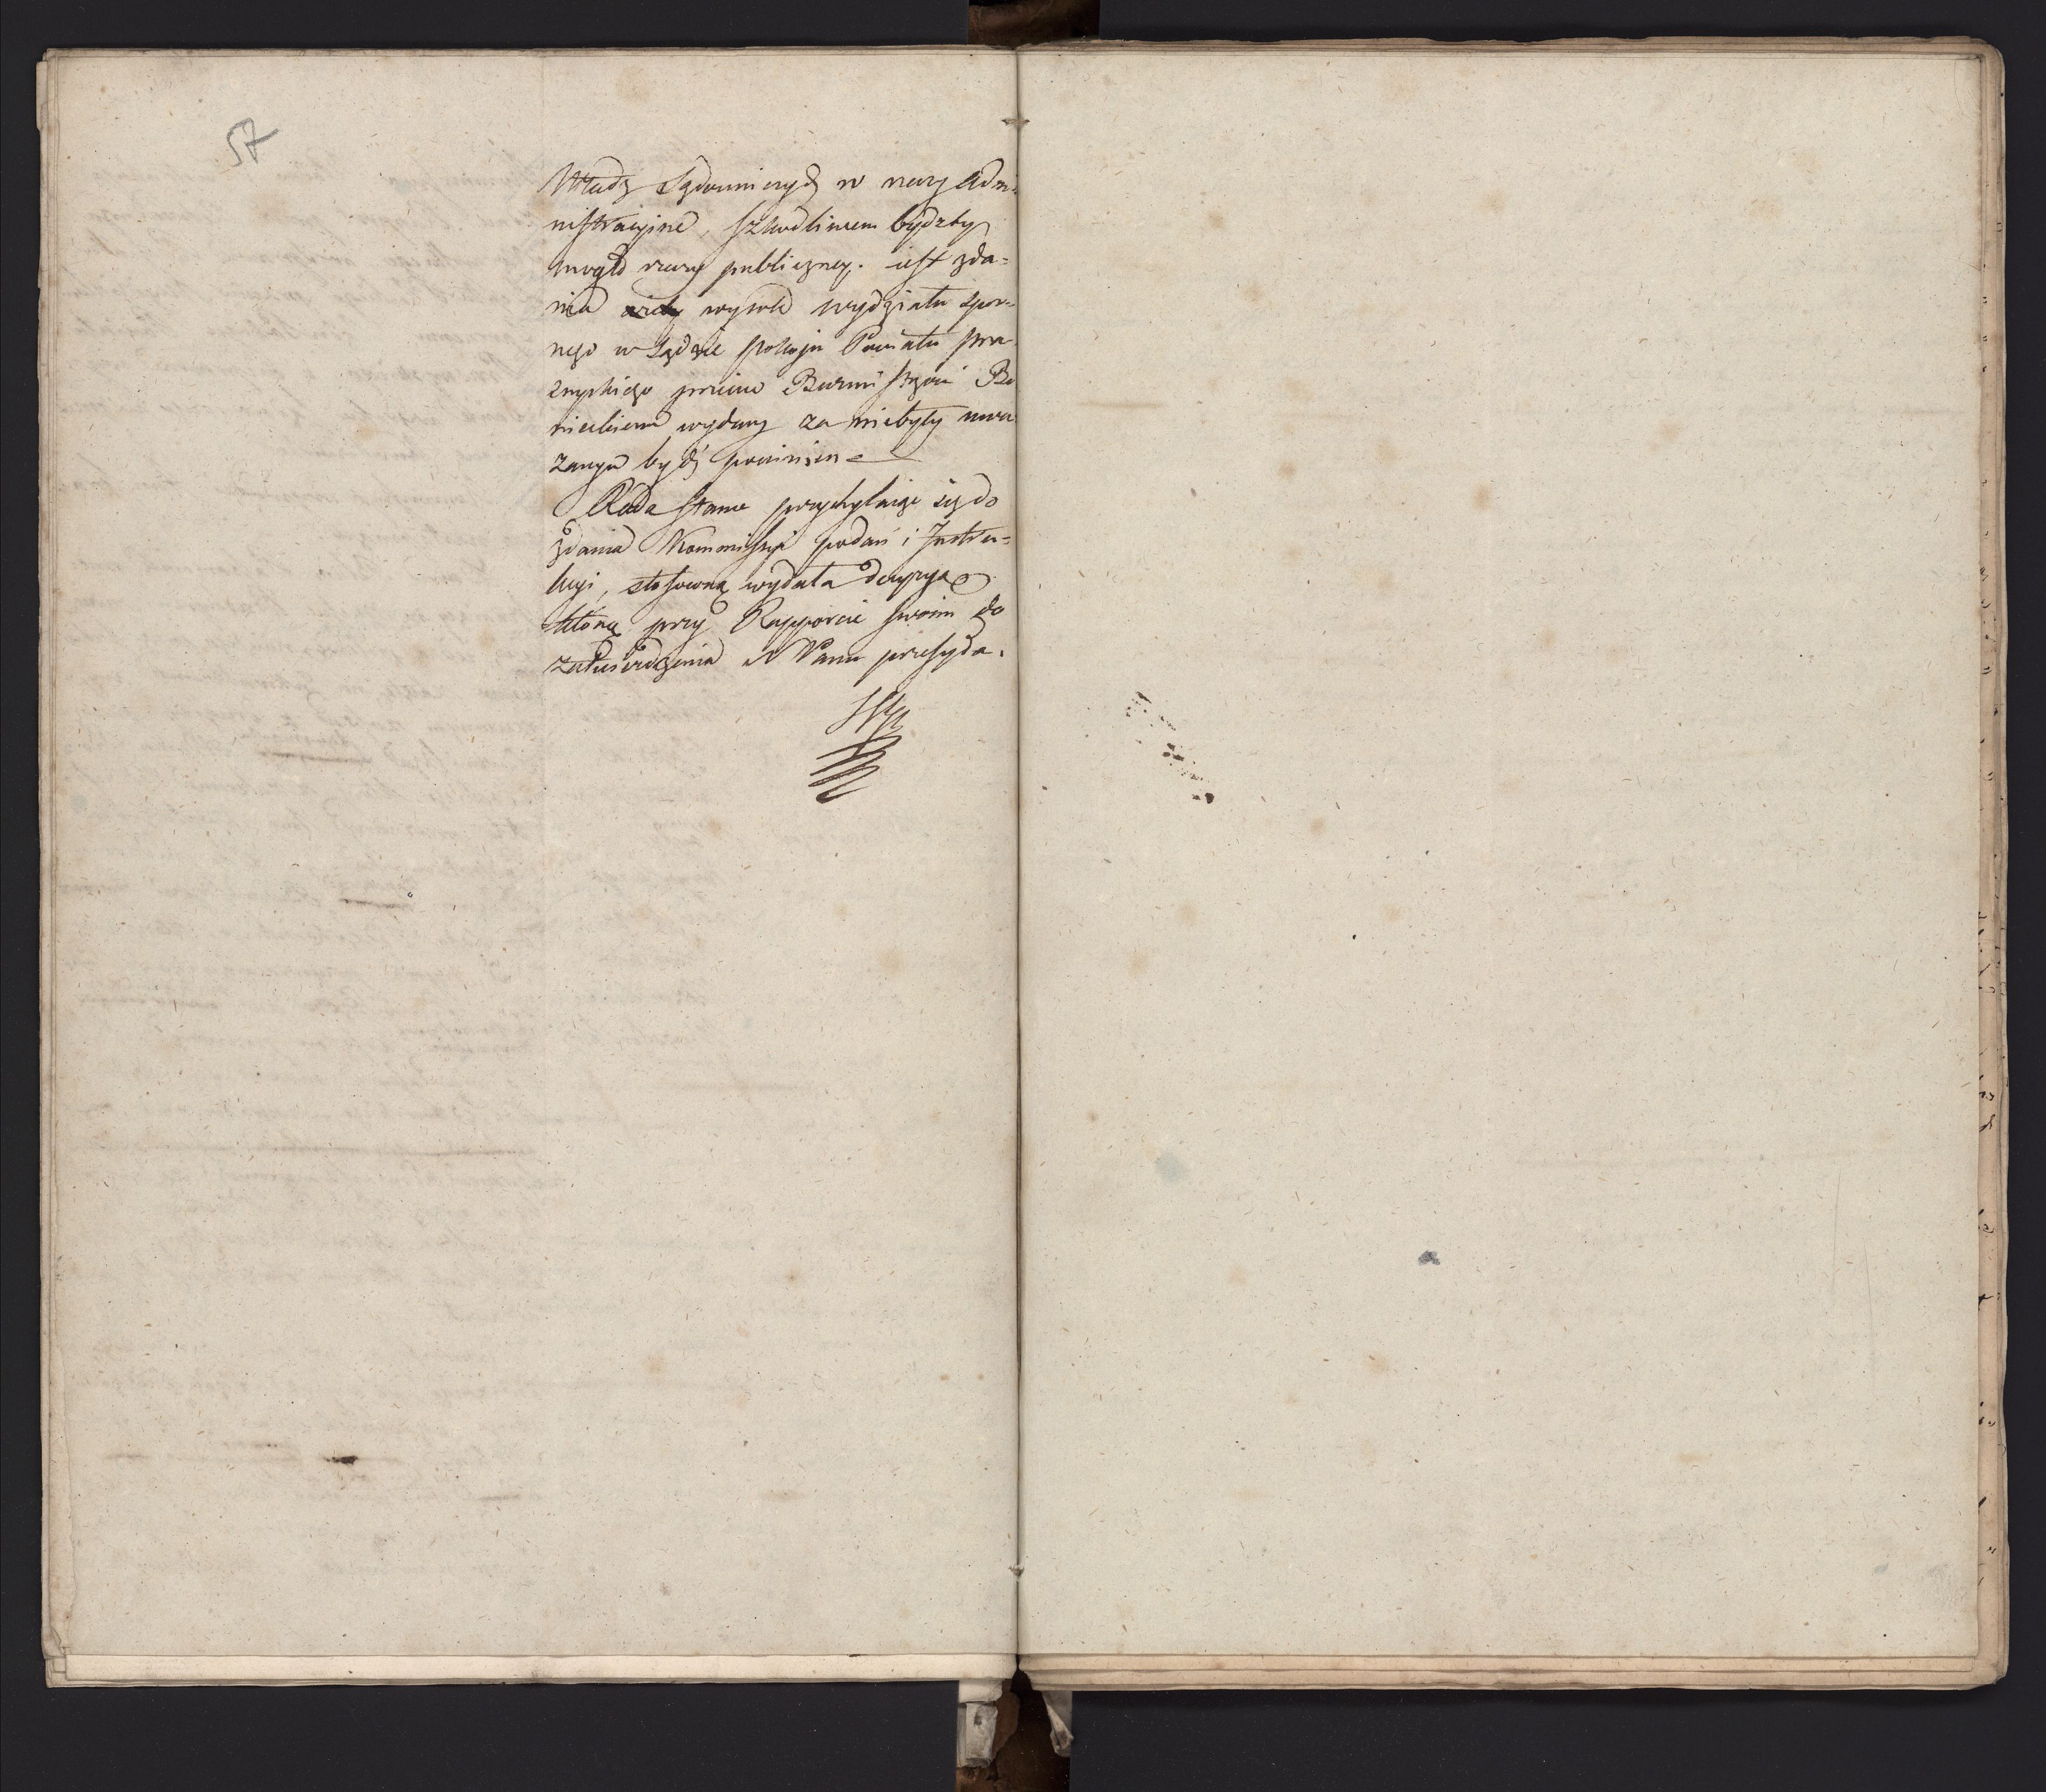 57
Władz Sądowniczych w rzeczy Admi-
nistracyine, szkodliwem bydźby
mogło rzeczy publiczney. iest zda-
nia wyrok wydziału spor-
nego w Sądzie pokoju Powiatu Pra-
snyskiego przeciw Burmistrzowi
wydany za niebyły uwa
żanym bydź powinien
Rada Stanu przychylaiąc się do
zdania Kommissyi podań i Instru-
kcyi, stosowną wydała decyzyą
którą przy Rapporcie swoim do
zatwierdzenia N Panu przesyła.